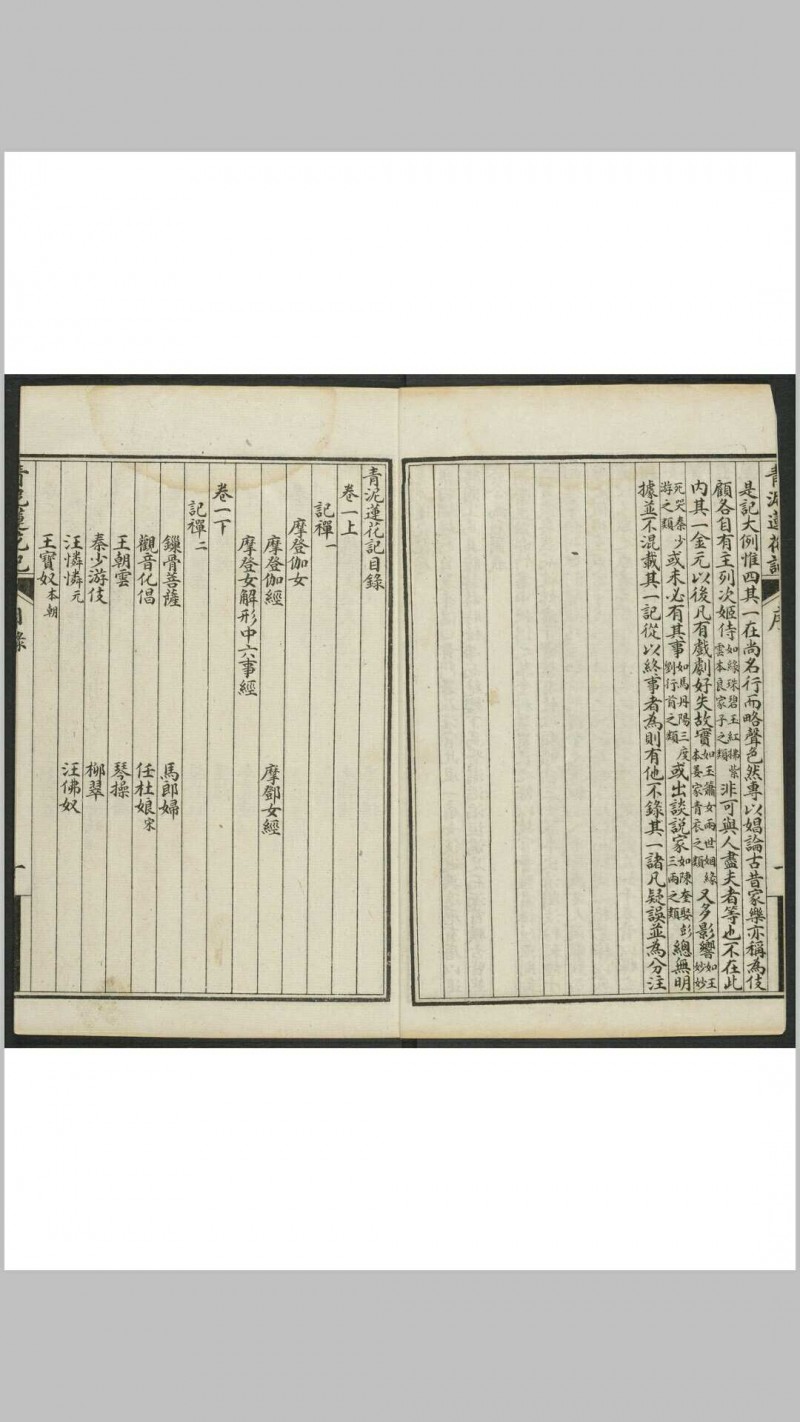 青泥蓮花記 序 一
是記大例惟四其一在尚名行而略聲色然專以娼論古昔家樂亦稱為伎
顧各自有主列次姬侍如綠珠碧玉紅拂紫雲本良家子之類非可與人盡夫者等也不在此
內其一金元以後凡有戲劇好失故實如玉簫女兩世姻緣本姜家青衣之類又多影響如王妙妙
死哭秦少游之類或未必有其事如馬丹陽三度劉行首之類或出談說家如陳奎娶彭三兩之類總無明
據並不混載其一記從以終事者為則有他不錄其一諸凡疑誤並為分注
青泥蓮花記目錄
卷一上
記禪一
摩登伽女
摩登伽經 摩鄧女經
摩登女解形中六事經
卷一下
記禪二
鏁骨菩薩 馬郎婦
觀音化倡 任杜娘宋
王朝雲 琴操
秦少游伎 柳翠
汪憐憐元 汪佛奴
王寶奴本朝
青泥蓮花記 目錄 一